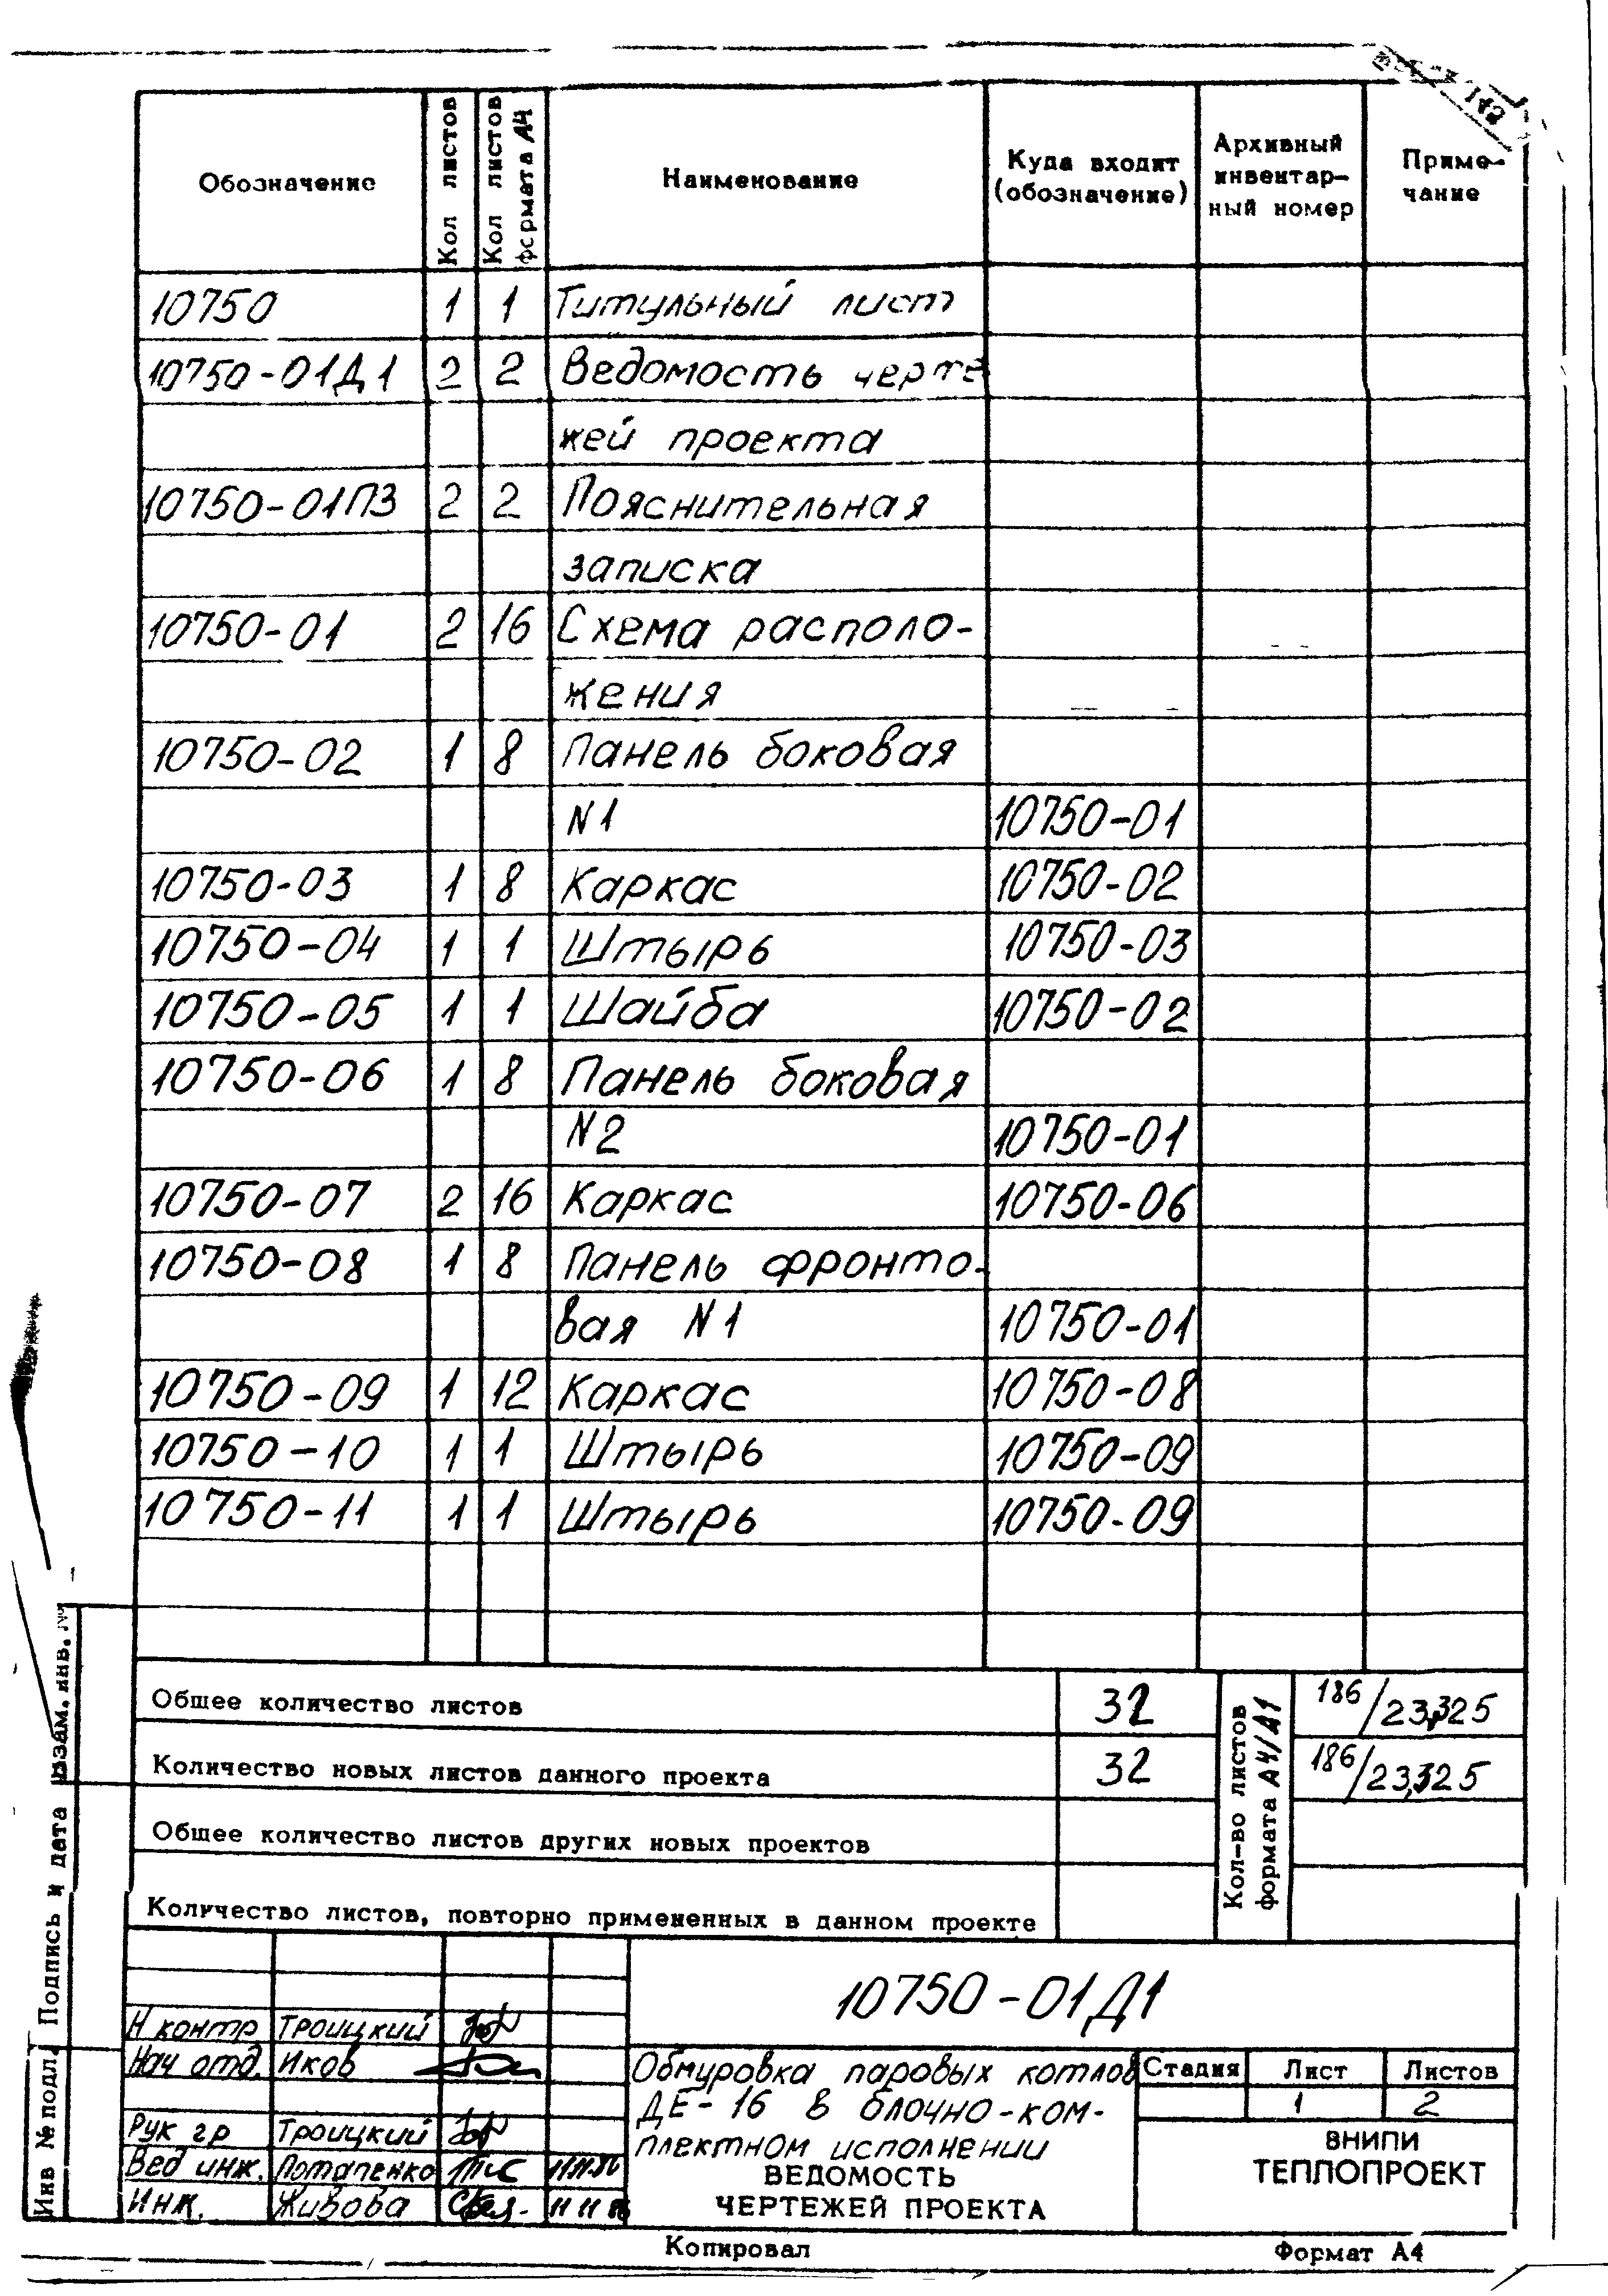 Обозначение
Кол листов
Кол листов формата А4
Наименование
Куда входит (обозначение)
Архивный инвентар-ный номер
Приме-чание
10750 1 1 Титульный лист
10750-01Д1 2 2 Ведомость черте
жей проекта
10750-01ПЗ 2 2 Пояснительная
записка
10750-01 2 16 Схема располо-
жения
10750-02 1 8 Панель боковая
N1 10750-01
10750-03 1 8 Каркас 10750-02
10750-04 1 1 Штырь 10750-03
10750-05 1 1 Шайба 10750-02
10750-06 1 8 Панель боковая
N2 10750-01
10750-07 2 16 Каркас 10750-06
10750-08 1 8 Панель фронто-
вая N1 10750-01
10750-09 1 12 Каркас 10750-08
10750-10 1 1 Штырь 10750-09
10750-11 1 1 Штырь 10750-09
Общее количество листов 32 186/23,325
Количество новых листов данного проекта 32 186/23,325
Общее количество листов других новых проектов
Количество листов, повторно примененных в данном проекте
Кол-во листов
формата А4/А1
10750-01Д1
Н контр Троицкий
Нач отд. Иков
Рук гр Троицкий
Вед инж. Потапенко 11.11.86
Инж. Живова 11 11 86
Обмуровка паровых котлов
ДЕ-16 в блочно-ком-
плектном исполнении
ВЕДОМОСТЬ
ЧЕРТЕЖЕЙ ПРОЕКТА
Стадия Лист Листов
1 2
ВНИПИ
ТЕПЛОПРОЕКТ
Инв № подл. Подпись и дата Взам. инв. №
Копировал Формат А4